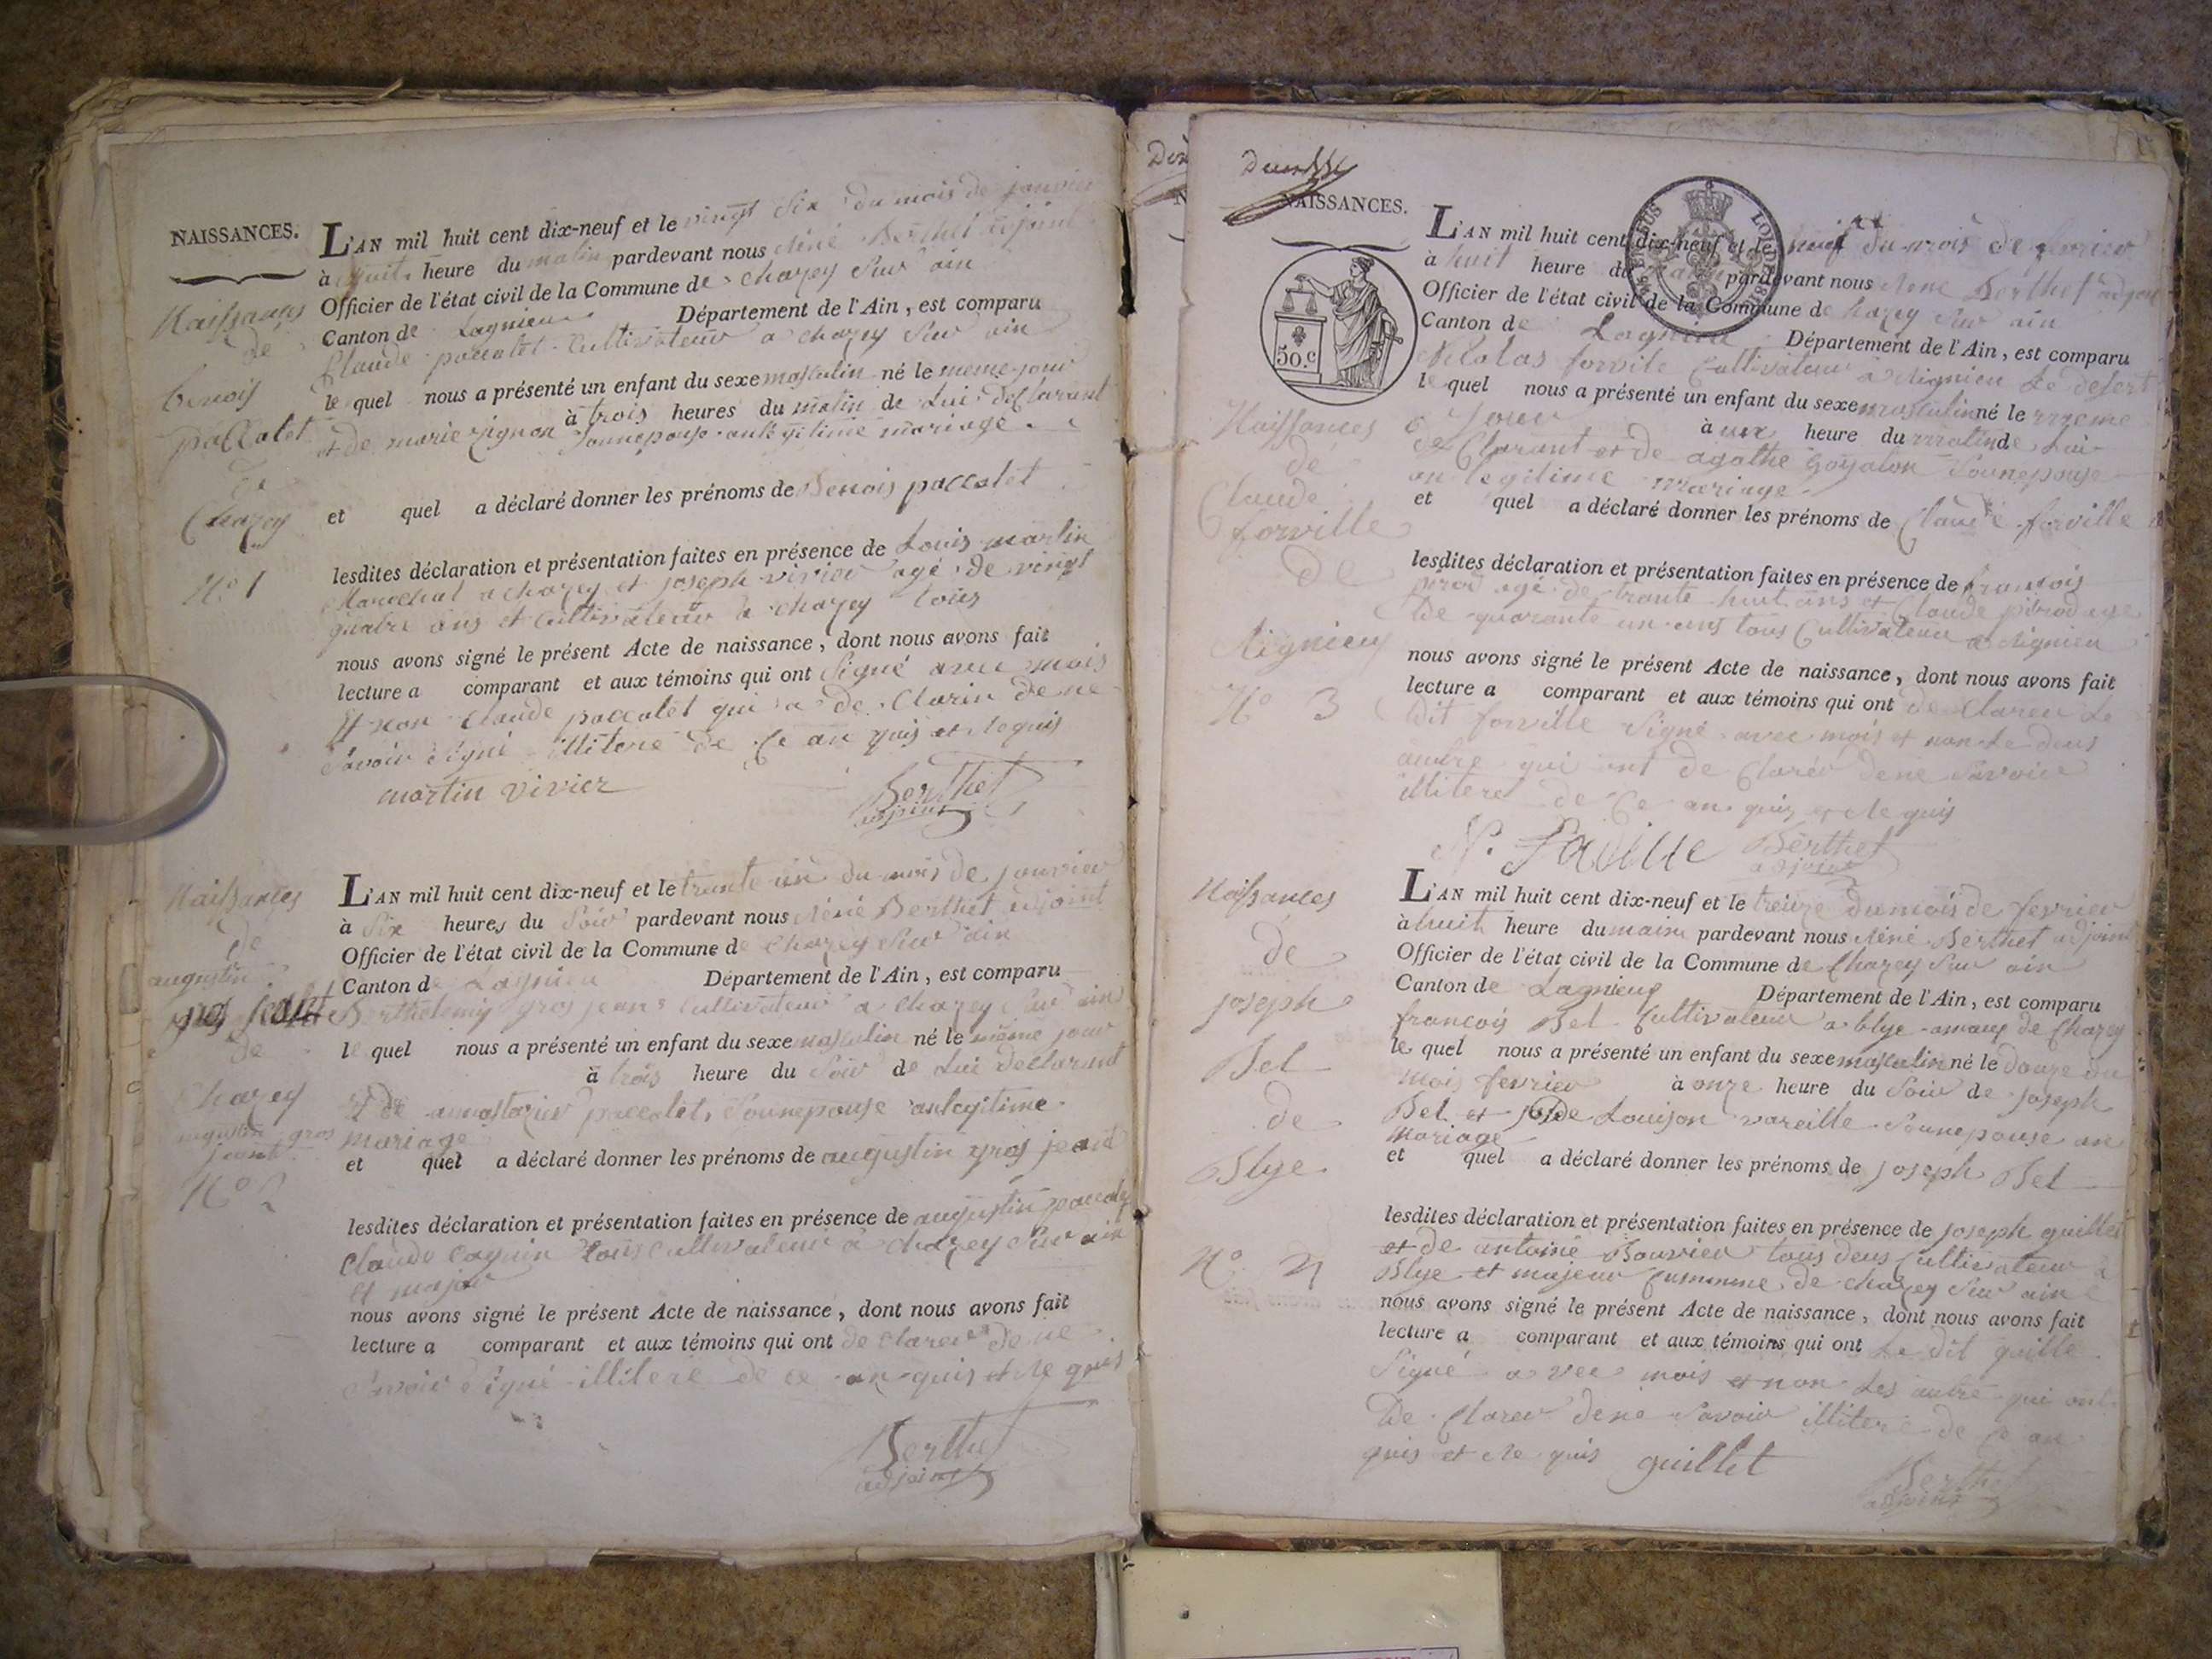 NAISSANCES.
Naissances
de
benois
paccalet
de
Chazey
N.o 1
L'AN mil huit cent dix-neuf et le vingt Six du mois de janvier
à huit heure du matin pardevant nous Réné Berthet adjoint
Officier de l'état civil de la Commune de chazey Sur ain
Canton de Lagnieu Département de l'Ain, est comparu
Claude paccalet Cultivateur a chazey Sur ain
le quel nous a présenté un enfant du sexe masculin né le meme jour
à trois heures du matin de Lui declarant
et de marie pignon Sonnepouse an legitime mariage
et quel a déclaré donner les prénoms de Benois paccalet
lesdites déclaration et présentation faites en présence de Louis martin
Marechal a chazey et joseph vivier agé de vingt
quatre ans et Cultivateur a chazey tous
nous avons signé le présent Acte de naissance, dont nous avons fait
lecture a comparant et aux témoins qui ont Signé avec mois
Et non Claude paccalet qui a de Clarin de ne
Savoir Signé illiteré de Ce an quis et Requis
martin vivier
Berthet
adjoint
Naissances
de
augustin
gros jeant
de
Chazey
augustin gros
jeant
N.o 2
L'AN mil huit cent dix-neuf et le trante un du mois de janvier
à Six heures du Soir pardevant nous Réné Berthet adjoint
Officier de l'état civil de la Commune de Chazey Sur ain
Canton de Lagnieu Département de l'Ain, est comparu
Berthelemy gros jean Cultivateur a Chazey Sur ain
le quel nous a présenté un enfant du sexe masculin né le même jour
à trois heure du Soir de Lui declarant
Et de paccalet, Sonnepouse an legitime
mariage
et quel a déclaré donner les prénoms de augustin gros jeant
lesdites déclaration et présentation faites en présence de augustin paccalet
Claude Cagnin tous Cultivateur a Chazey Sur ain
et major
nous avons signé le présent Acte de naissance, dont nous avons fait
lecture a comparant et aux témoins qui ont de Clarer de ne
Savoir Signé illiteré de ce an quis et Re quis
Berthet
adjoint
NAISSANCES.
50.c
Naissances
de
Claude
forville
de
Rignieu
N.o 3
L'AN mil huit cent dix-neuf et le neuf du mois de fevrier
à huit heure du pardevant nous Réné Berthet adjoint
Officier de l'état civil de la Commune de Chazey Sur ain
Canton de Lagnieu Département de l'Ain, est comparu
Nicolas forvile Cultivateur a Rignieu Le desert
le quel nous a présenté un enfant du sexe masculin né le meme
jour à une heure du matin de Lui
de Clarant et de agathe Sonnepouse
an legitime mariage
et quel a déclaré donner les prénoms de Claude forville
lesdites déclaration et présentation faites en présence de francois
pirod agé de trante huit ans et Claude pirod age
De quarante un ans tous Cultivateur a Rignieu
nous avons signé le présent Acte de naissance, dont nous avons fait
lecture a comparant et aux témoins qui ont de Clarer Le
Dit forville Signé avec mois et non Le deus
autre qui ont de Clarér de ne Savoir
illiteré de Ce an quis et Re quis
Berthet
adjoint
Naissances
de
joseph
Bel
de
Blye
N.o 4
L'AN mil huit cent dix-neuf et le treize du mois de fevrier
à huit heure du matin pardevant nous Réné Berthet adjoint
Officier de l'état civil de la Commune de Chazey Sur ain
Canton de Lagnieu Département de l'Ain, est comparu
francois Bel Cultivateur a blye amaux de Chazey
le quel nous a présenté un enfant du sexe masculin né le douze du
mois fevrier à onze heure du Soir de joseph
Bel et de Louison vareille Sonnepouse an
mariage
et quel a déclaré donner les prénoms de joseph Bel
lesdites déclaration et présentation faites en présence de joseph guillet
et de antoine Bouvier tous deus Cultivateur a
Blye et majeur Commune de chazey Sur ain
nous avons signé le présent Acte de naissance, dont nous avons fait
lecture a comparant et aux témoins qui ont Le dit guille
Signé avec mois et non Les autre qui ont
De Clarer de ne Savoir illiteré de Ce an
quis et Re quis guillet
Berthet
adjoint